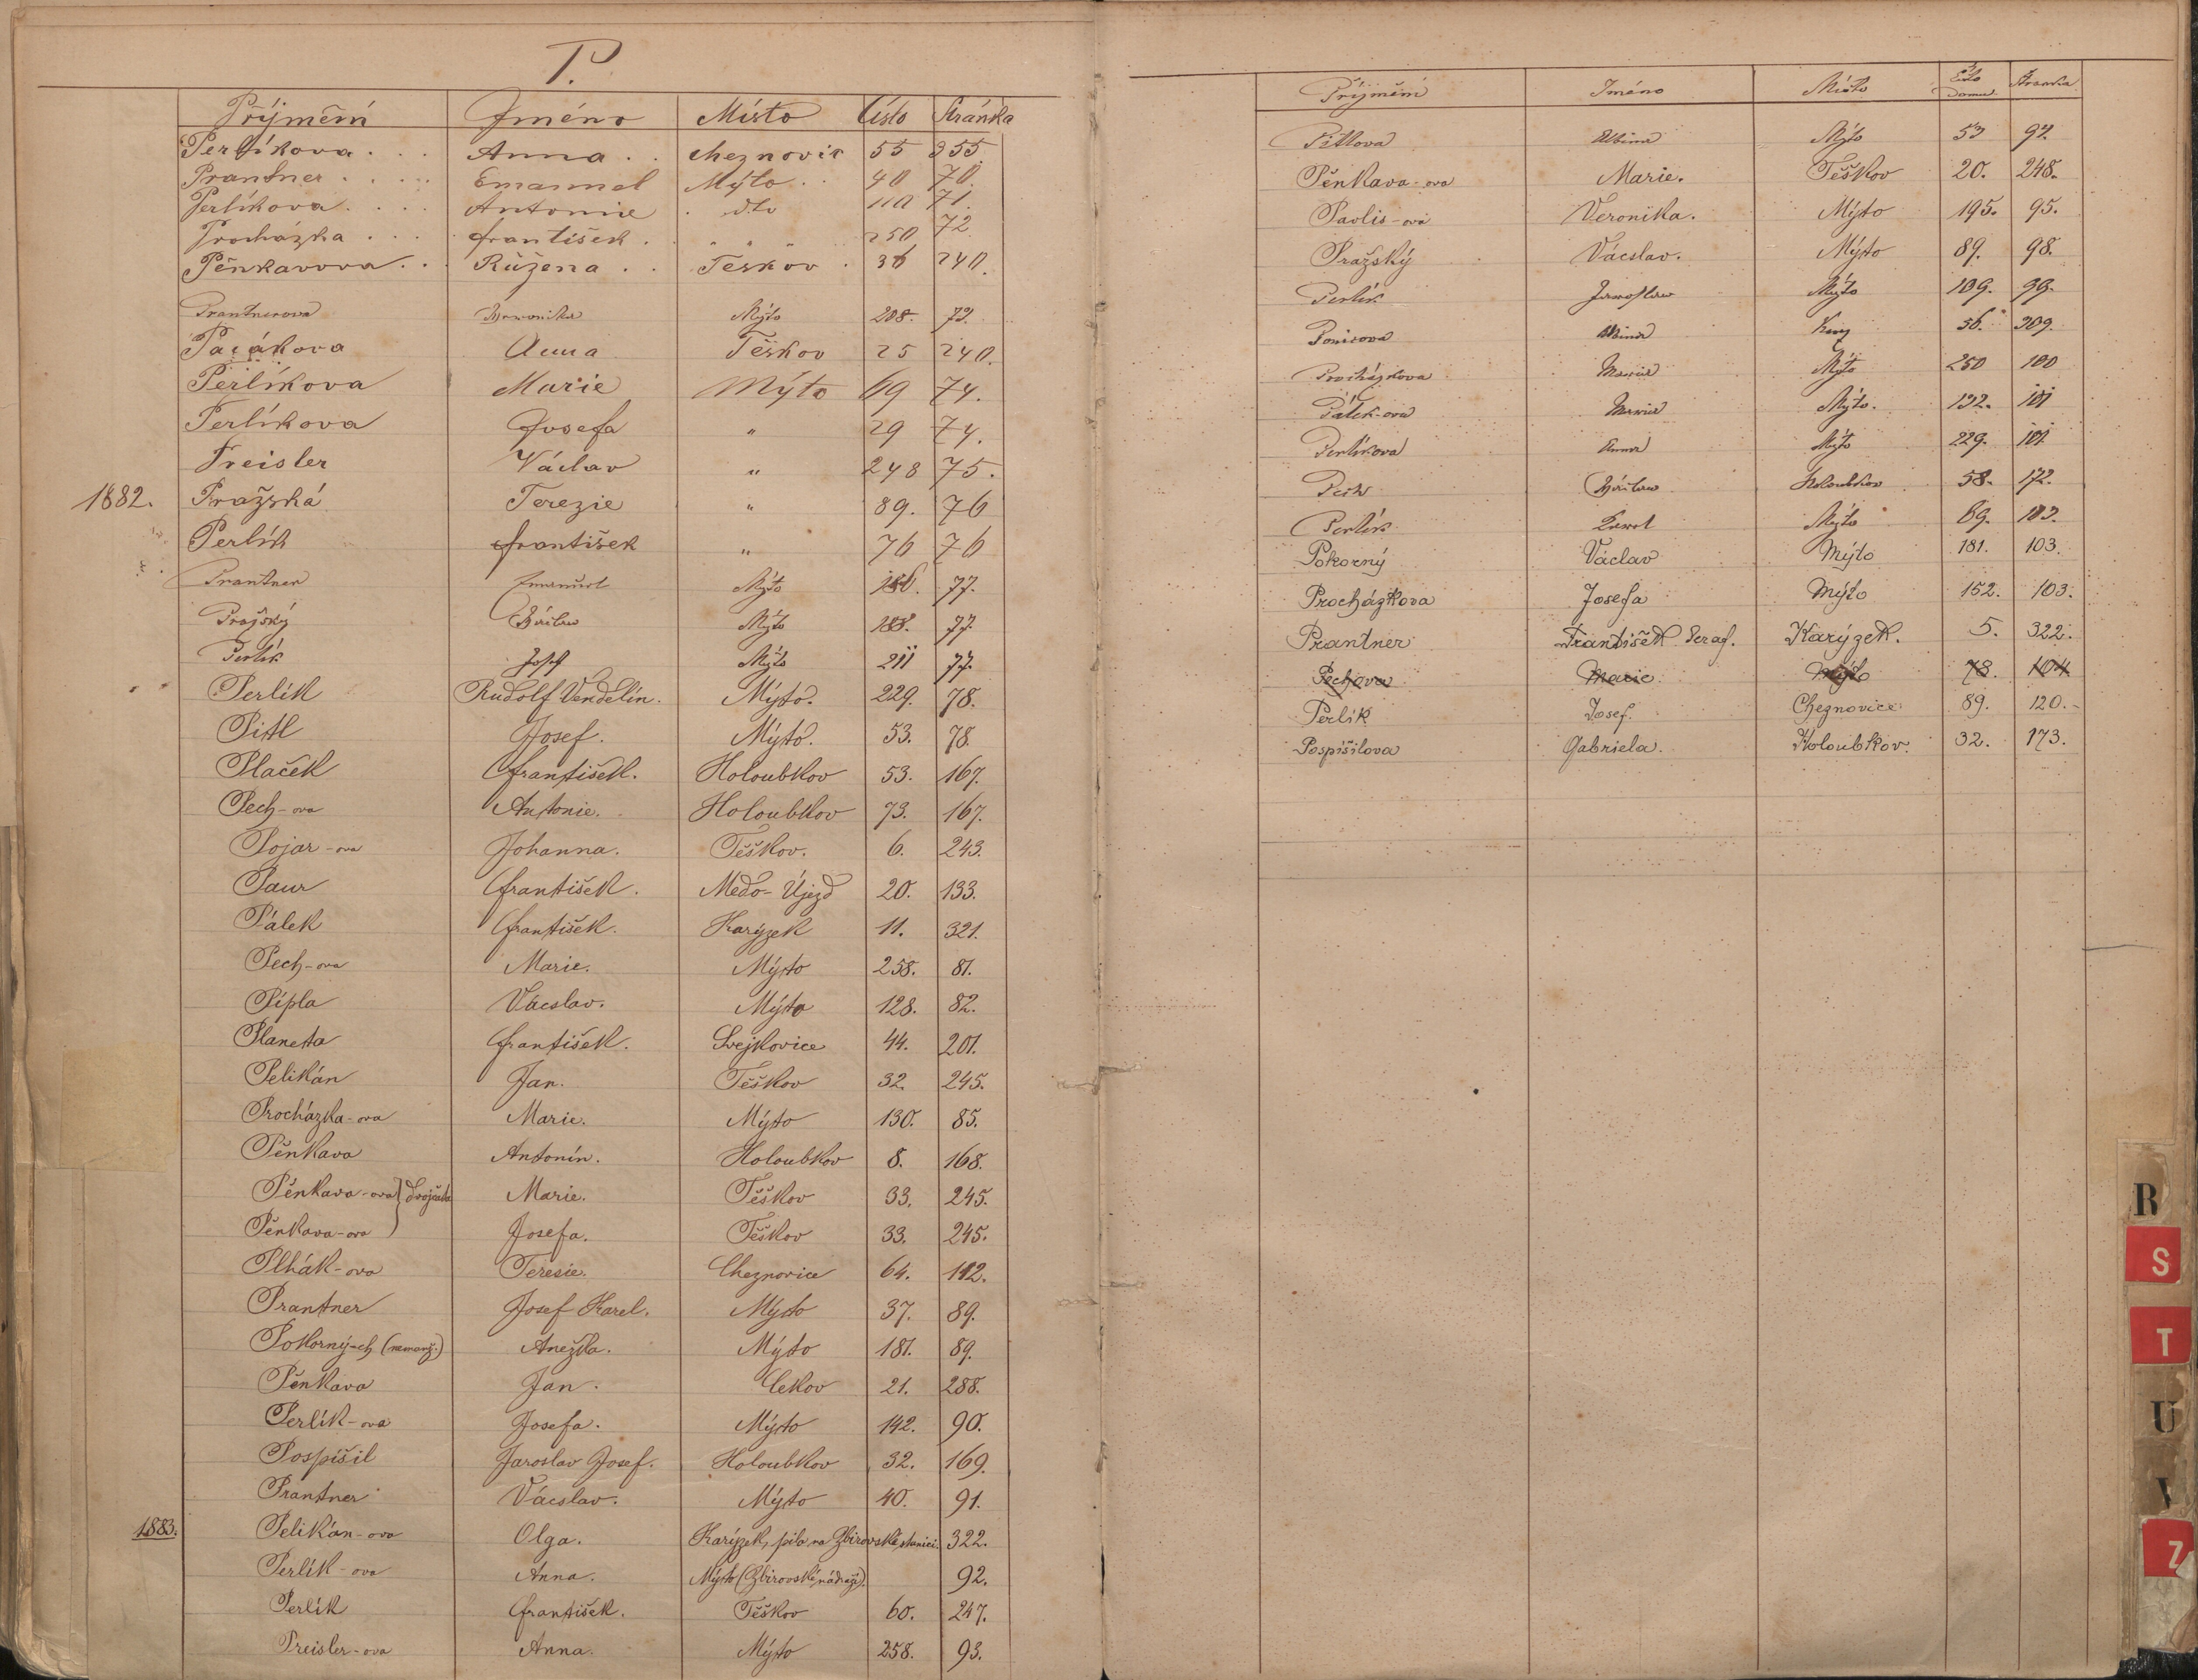 P.
Příjmění Jméno Místo Číslo Stránka
Perlíkova . . . Anna . . Cheznovic 55 355.
Prantner . . . . Emanuel Mýto . . 40 70.
Perlíkova . . . . Antonie . dto 110 71.
Procházka . . . František . „ „ „ 250 72
Pěnkavova . . Růžena . . Těškov . 36 240.
Prantnerova Mýto 208. 73.
Pacákova Anna Těškov 25 240.
Perlíkova Marie Mýto 69 74.
Perlíkova Josefa „ 29 74.
Preisler Václav „ 248 75.
1882. Pražská Terezie „ 89. 76
Perlík František „ 76 76
Prantner Emanuel Mýto 77.
Pražský Václav Mýto 188. 77.
Perlík Josef Mýto 211 77.
Perlík Rudolf Vendelín. Mýto. 229. 78.
Pitl Josef. Mýto. 53. 78.
Plaček František. Holoubkov 53. 167.
Pech-ova Antonie. Holoubkov 73. 167.
Pojar-ova Johanna. Těškov. 6. 243.
Paur František. Medo-Újezd 20. 133.
Pálek František. Karýzek 11. 321.
Pech-ova Marie. Mýto 258. 81.
Pípla Vácslav. Mýto 128. 82.
Planeta František. Svejkovice 44. 201.
Pelikán Jan. Těškov 32. 245.
Procházka-ova Marie. Mýto 130. 85.
Pěnkava Antonín. Holoubkov 8. 168.
Pěnkava-ova } dvojčata Marie. Těškov 33. 245.
Pěnkava-ova Josefa. Těškov 33. 245.
Plhák-ova Teresie. Cheznovice 64. 112.
Prantner Josef Karel. Mýto 37. 89.
Pokorný-ch (nemanž.) Anežka. Mýto 181. 89.
Pěnkava Jan. Cekov 21. 288.
Perlík-ova Josefa. Mýto 142. 90.
Pospíšil Jaroslav Josef. Holoubkov 32. 169.
Prantner Vácslav. Mýto 40. 91.
1883. Pelikán-ova Olga. Karýzek, pila na Zbirovské stanici. 322.
Perlík-ova Anna. Mýto (Zbirovské nádraží). 92.
Perlík František. Těškov 60. 247.
Preisler-ova Anna. Mýto 258. 93.
Příjmění Jméno Místo Číslo Domu Stránka
Pitlova Albina Mýto 53 94.
Pěnkava-ova Marie. Těškov 20. 248.
Pavlis-ova Veronika. Mýto 195. 95.
Pražský Vácslav. Mýto 89. 98.
Perlík Jaroslav Mýto 109. 99.
Albina 56. 309.
Procházkova Marie Mýto 250 100
Pálek-ova Marie Mýto. 132. 101
Perlíkova Anna Mýto 229. 101
Pech Václav Holoubkov 58. 172.
Perlík Karel Mýto 69. 103.
Pokorný Václav Mýto 181. 103.
Procházkova Josefa Mýto 152. 103.
Prantner František Seraf. Karýzek. 5. 322.
Pechova Marie Mýto 78. 104
Perlík Josef. Cheznovice 89. 120.
Pospíšilova Gabriela. Holoubkov. 32. 173.
R
S
T
U
V
Z